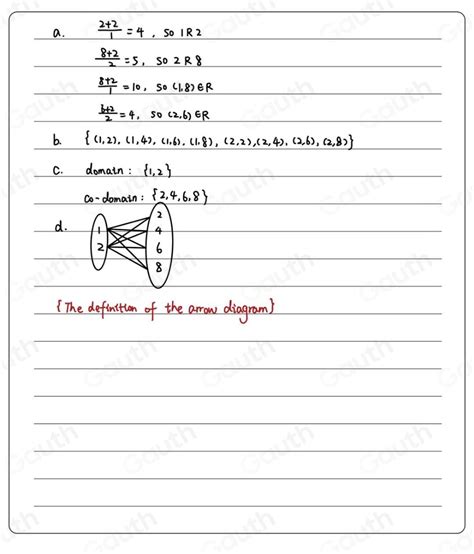 a. (2+2)/1 = 4, so 1 R 2
(8+2)/2 = 5, so 2 R 8
(8+2)/1 = 10, so (1,8) ∈ R
(6+2)/2 = 4, so (2,6) ∈ R
b. { (1,2), (1,4), (1,6), (1,8), (2,2), (2,4), (2,6), (2,8) }
c. domain : {1,2}
co-domain : {2,4,6,8}
d.
1
2
2
4
6
8
{The definition of the arrow diagram}
Gauth